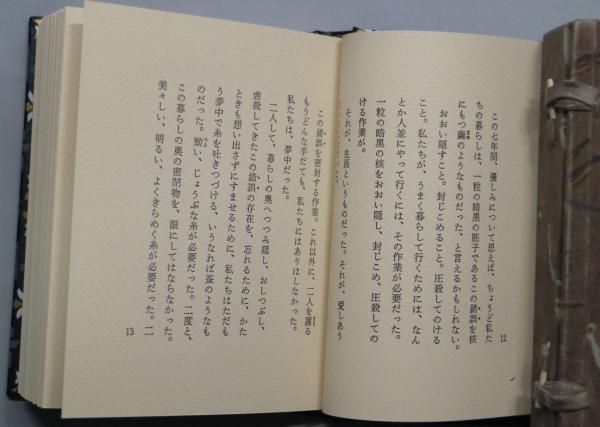 この七年間、優しみについて思えば、ちょうど私た
ちの暮らしは、一粒の暗黒の胚子であるこの錯誤を核
にもつ繭のようなものだった、と言えるかもしれない。
おおい隠すこと。封じこめること。圧殺してのける
こと。私たちが、うまく暮らして行くためには、なん
とか人並にやって行くには、その作業が必要だった。
一粒の暗黒の核をおおい隠し、封じこめ、圧殺しての
ける作業が。
それが、生活というものだった。それが、愛しあう
12
この錯誤を密封する作業。これ以外に、二人を護る
もうどんな手だても、私たちにはありはしなかった。
私たちは、夢中だった。
二人して、暮らしの奥へつつみ隠し、おしつぶし、
虐殺してきたこの錯誤の存在を、忘れるために、かた
ときも想い出さずにすませるために、私たちはただも
う夢中で糸を吐きつづける、いうなれば蚕のようなも
のだった。勁い、じょうぶな糸が必要だった。二度と、
この暮らしの奥の密閉物を、眼にしてはならなかった。
美々しい、明るい、よくきらめく糸が必要だった。二
13